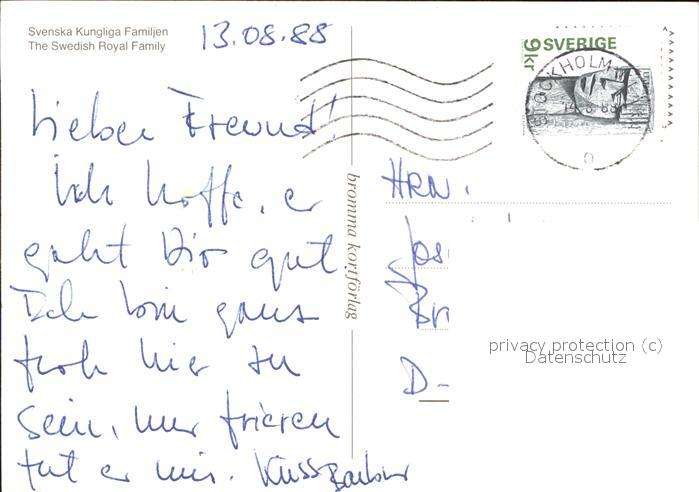 Svenska Kungliga Familjen
The Swedish Royal Family
13.08.88
9 kr SVERIGE
STOCKHOLM
Lieber Freund!
Ich hoffe, er
geht Dir gut
Ich bin ganz
froh hier zu
sein, nur frieren
tut er mir. Kuss Barbar
bromma kortförlag
HRN.
Jos
Br
D-
privacy protection (c)
Datenschutz